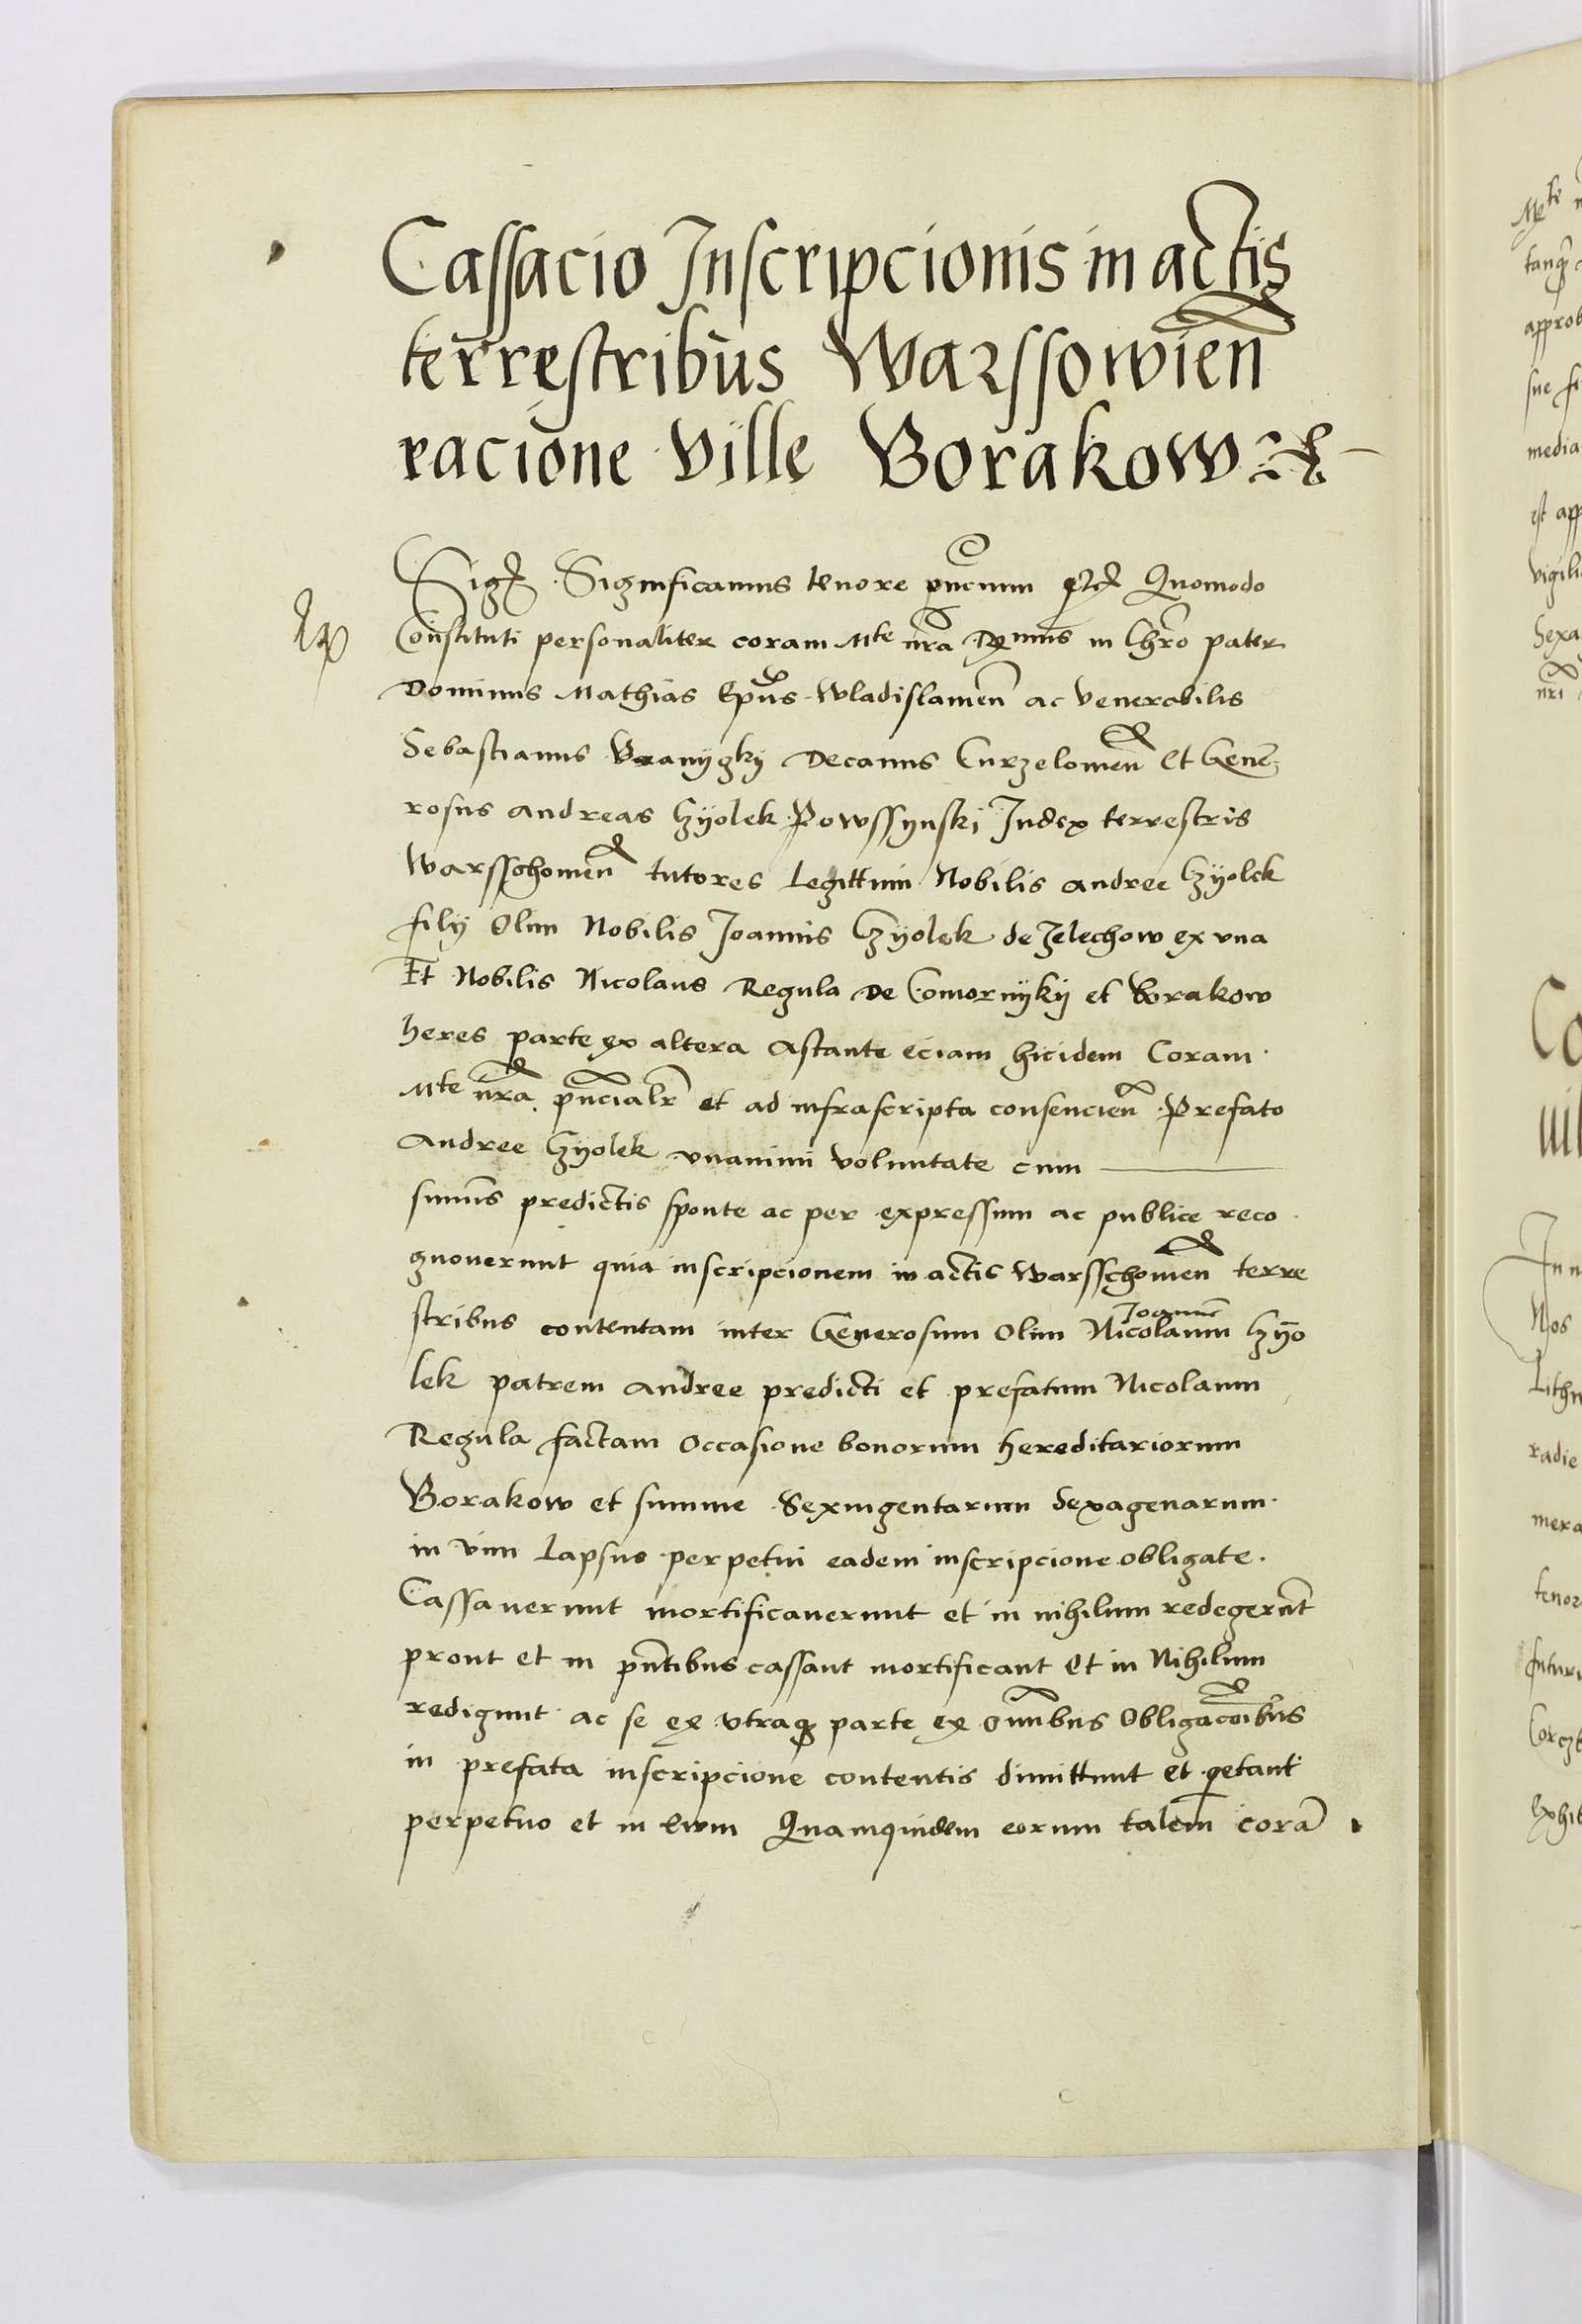 Cassacio Inscripcionis in actis
terrestribus Warssowien
racione ville Borakow
Sig Significamus tenore pncium Quomodo
Constituti personaliter coram Mte nra Rmus in Chro pater
Dominus Mathias Epus Wladislawien ac venerabilis
Sebastianus Branyczky Decanus Curzelowien Et Gene
rosus Andreas Czyolek Powssynski Iudex terrestris
Warsschowien tutores Legittimi Nobilis Andree Czyolek
filij Olim Nobilis Joannis Czyolek de Zelechow ex vna
Et Nobilis Nicolaus Regula De Comornyky et Borakow
heres parte ex altera Astante eciam hicidem Coram
Mte nra pncialr et ad infrascripta consencien Prefato
Andree Czyolek vnanimi voluntate cum
simus predictis sponte ac per expressum ac publice reco
gnoverunt quia inscripcionem in actis Warsschowien terre
stribus contentam inter Generosum Olim Nicolaum Joannem Czyo
lek patrem Andree predicti et prefatum Nicolaum
Regula factam Occasione bonorum hereditariorum
Borakow et summe Sexingentarum Sexagenarum
in vim Lapsus perpetui eadem inscripcione obligate.
Cassaverunt mortificaverunt et in nihilum redegerunt
prout et in pntibus cassant mortificant Et in Nihilum
redigunt ac se ex vtraque parte ex omnibus Obligacoibus
in prefata inscripcione contentis dimittunt et qetant
perpetuo et in ewm Quamquidem eorum talem cora
Mte
tanq
approb
sue
media
est app
vigili
Sexa
nri
Co
Nos
Lithu
radie
mera
tenor
futur
Exhib